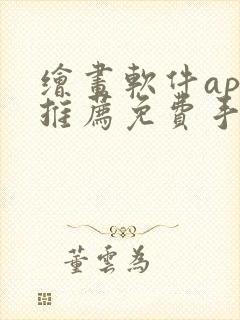 繪畫軟件ap
推薦免費手
董雲為